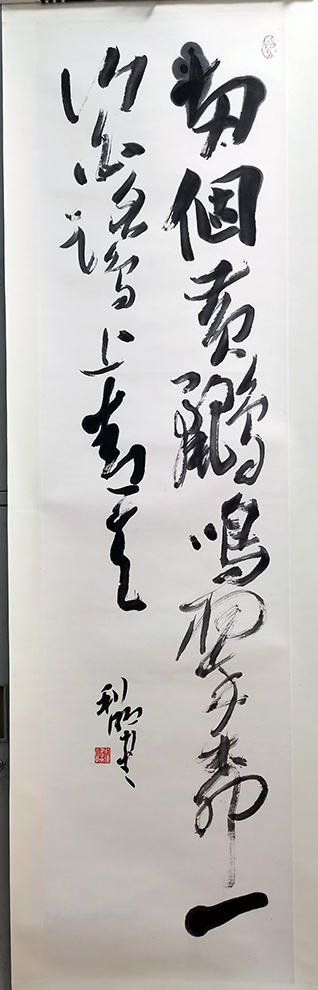 两個黄鸝鳴翠柳一
行白鷺上青天
利明书